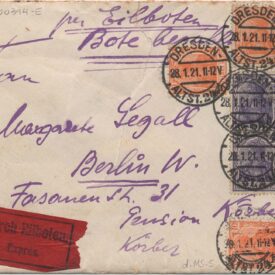 00394-E
per Eilboten
Bote be
DRESDEN-
28.1.21.11-12V
ALTST.24
DRESDEN
28.1.21.11-12V
ALTST.24
Margarete Segall
Berlin W.
Fasanenstr. 31
Pension
Körber
Körber
Durch Eilboten
Exprès
28.1.21.11-12V
d.MS-S